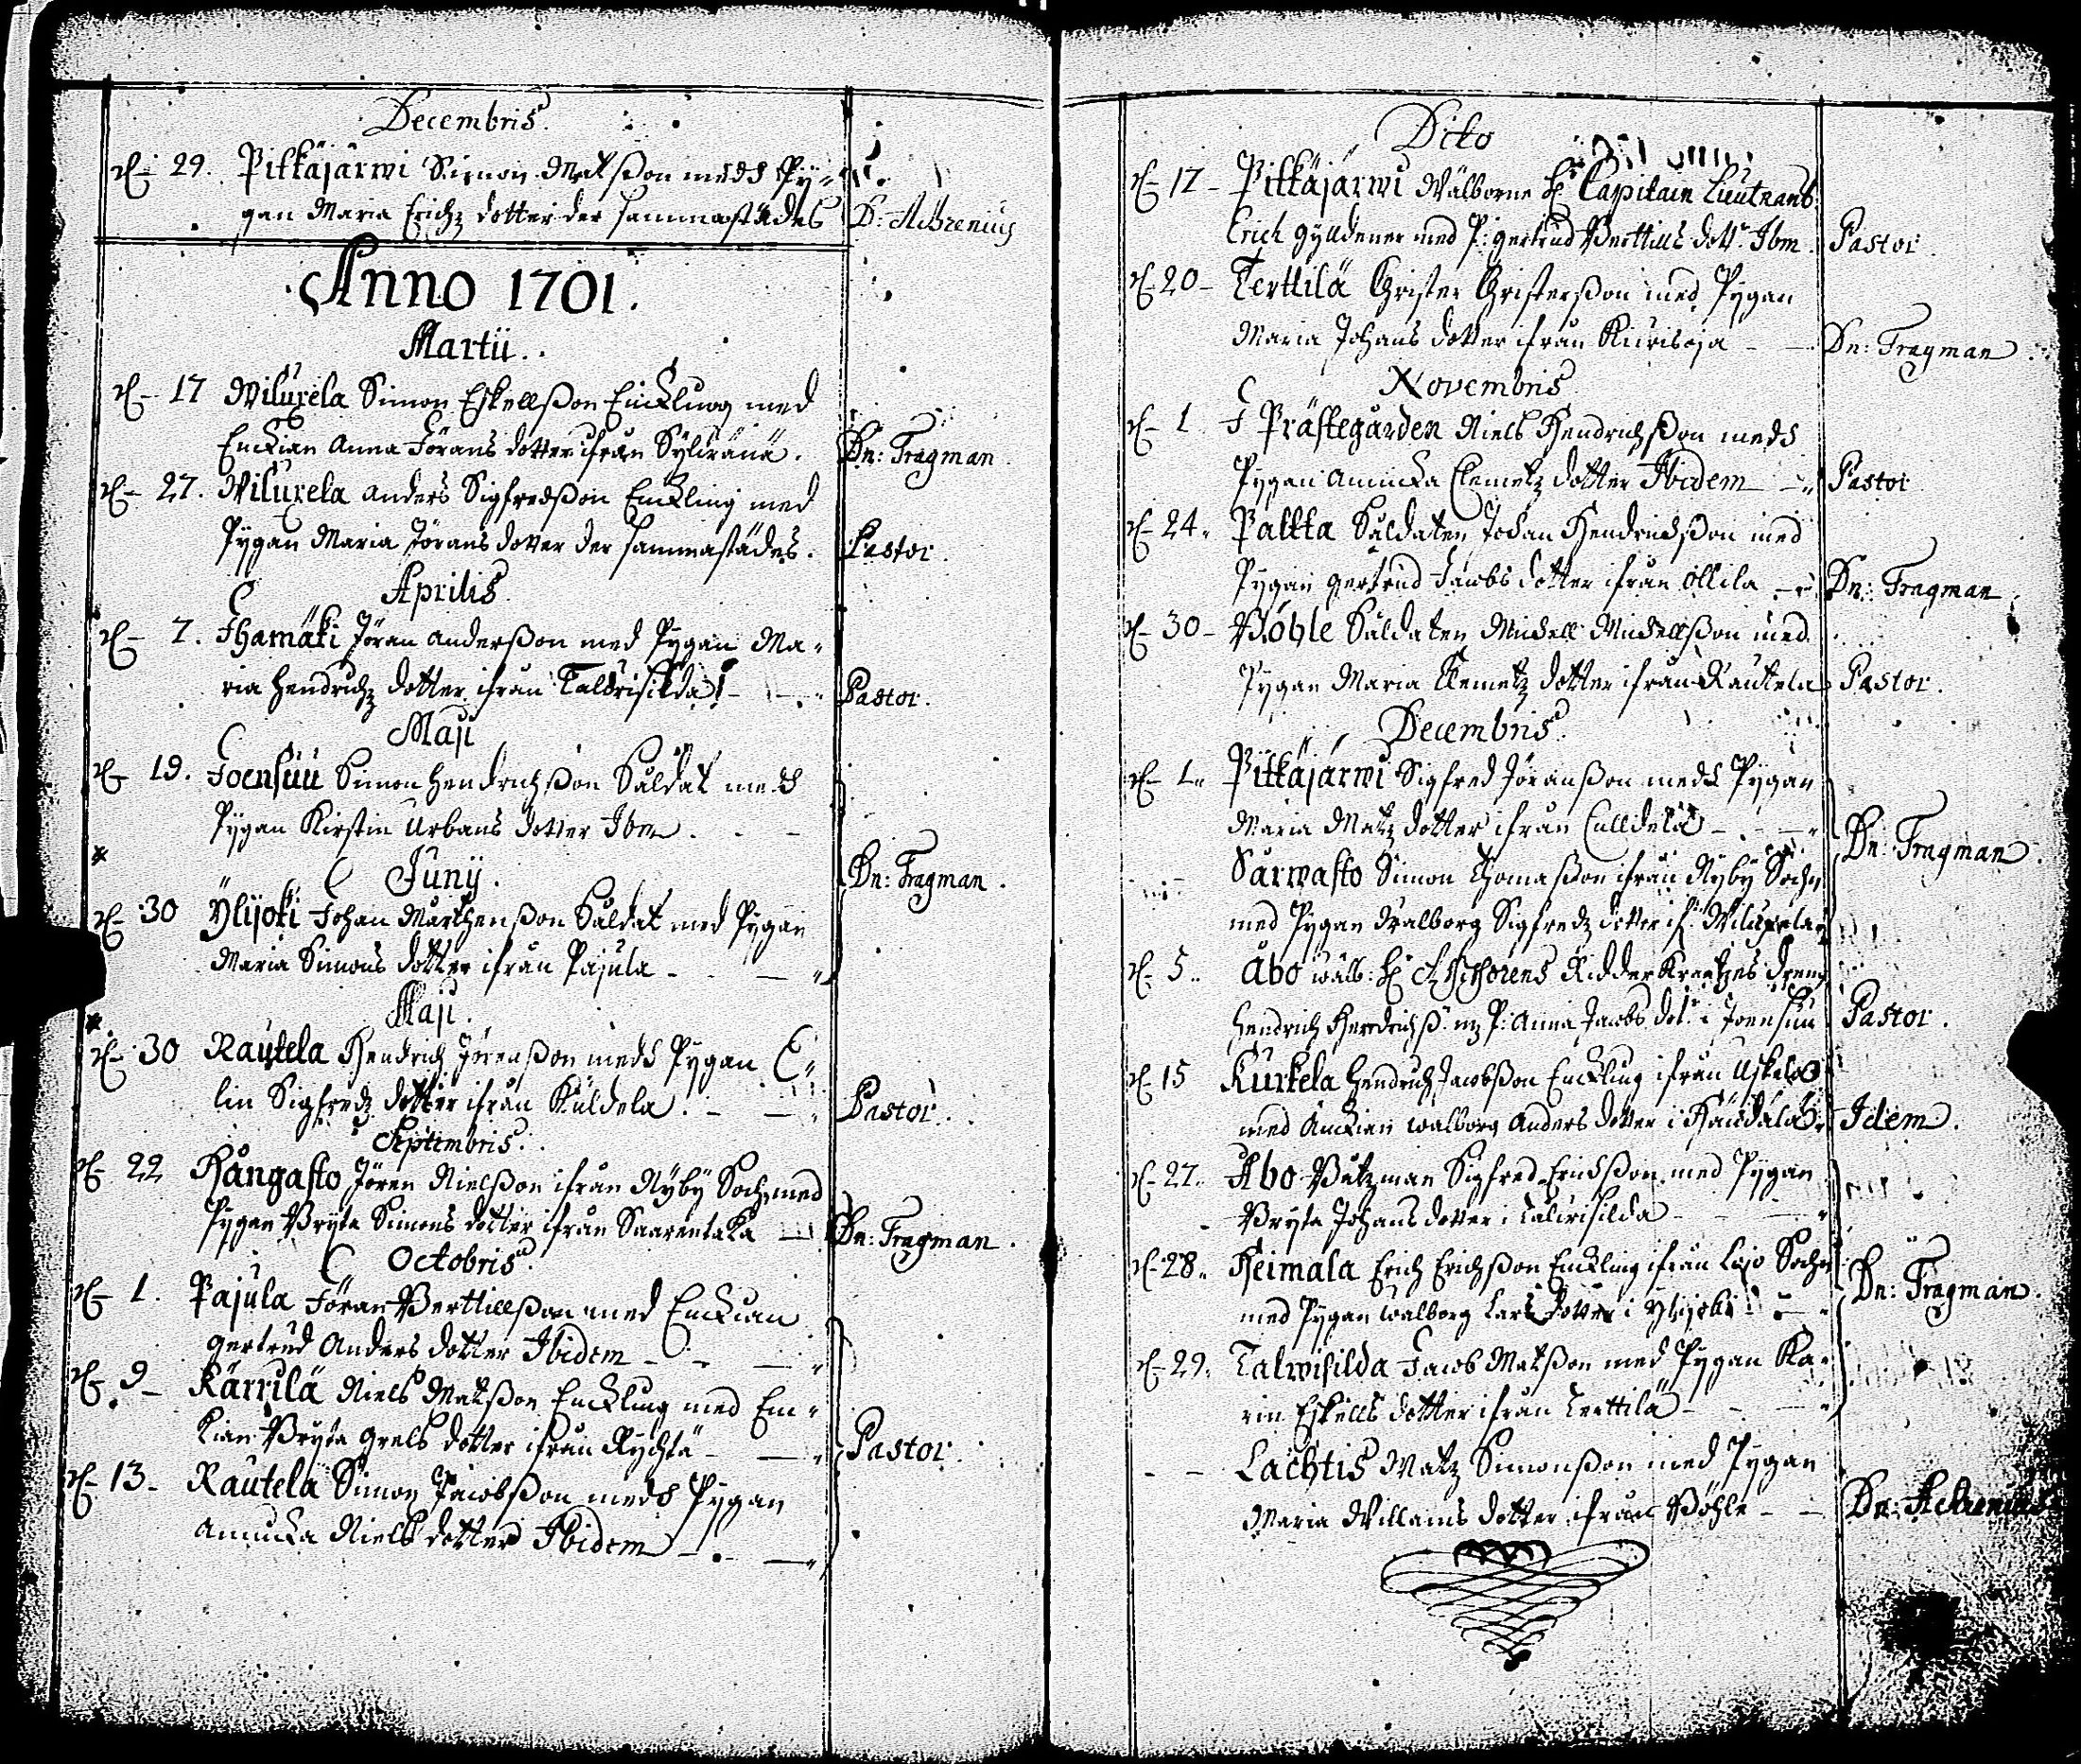 Decembris.
d. 29. Pitkäjärwi Simon Matsson medh Py-
gan Maria Erichz dotter der sammastädes D: Achrenius
Anno 1701.
Martii.
d. 17 Wiluxela Simon Eskellsson Enckling med
Enckian Anna Jörans dotter ifrån Syllränä. Dn: Tragman.
d. 27. Wiluxela Anders Sigfredsson Enckling med
Pygan Maria Jörans dotter der sammastädes. Pastor.
Aprilis.
d. 7. Ihamäki Jöran Andersson med Pygan Ma-
ria Hendrichz dotter ifrån Pastor.
Maji
d. 19. Joensuu Simon Hendrichsson Såldat medh
Pygan Kirstin Urbans dotter Ibm.
Junij. Dn: Tragman.
d. 30 Ylijoki Johan Mårthensson Såldat med Pygan
Maria Simons dotter ifrån Pajula
Maji.
d. 30 Rautela Hendrich Jörensson medh Pygan E-
lin Sigfredz dotter ifrån Kuldela. Pastor.
Septembris.
d. 22 Kångasto Jören Nielsson ifrån Nyby Sochn med
Pygan Bryta Simons dotter ifrån Saarentaka Dn: Tragman.
Octobris.
d. 1. Pajula Jöran Bertillsson med Enckian
Gertrud Anders dotter Ibidem
d. 9 Kärrilä Niels Matsson Enckling med En-
kian Bryta Grels dotter ifrån Rychtä Pastor.
d. 13 Rautela Simon Jacobsson medh Pygan
Annicka Niels dotter Ibidem
Dito
d. 17 Pitkäjärwi Wälborne H. Capitain Luutnanb
Erich Gyldener med P: Gertrud Bertills dott. Ibm. Pastor.
d. 20 Terttilä Christer Christersson med Pygan
Maria Johans dotter ifrån Kurisoja Dn: Tragman.
Novembris
d. 1 I Prästegården Niels Hendrichsson medh
Pygan Annicka Clemetz dotter Ibidem Pastor
d. 24. Palkka Såldaten Johan Hendrichsson med
Pygan Gertrud Jacobs dotter ifrån Ollila Dn: Tragman
d. 30 Böhle Såldaten Michell Michellsson med
Pygan Maria Klemetz dotter ifrån Rautela Pastor.
Decembris.
d. 1. Pitkäjärwi Sigfred Jöransson medh Pygan
Maria Matz dotter ifrån Culldela Dn: Tragman.
Sarwasto Simon Thomasson ifrån Nyby Sochn
med Pygan Walborg Sigfredz dotter if. Wiluxela
d. 5. Åbo Wälb: H. Ridder Dreng
Hendrich Hendrichss. m P: Anna Jacobs dot. i Joensuu Pastor.
d. 15 Kurkela Hendrich Jacobsson Enckling ifrån Uskela
med Enckian Walborg Anders dotter i Idem.
d. 27. Åbo Båtzman Sigfred Erichsson med Pygan
Bryta Johans dotter i Talwisilda
d. 28. Heimala Erich Erichsson Enckling ifrån Lojo Sochn
med Pygan Walborg Lars dotter i Ylijoki Dn: Tragman.
d. 29. Talwisilda Jacob Matsson med Pygan Ka-
rin Eskells dotter ifrån Terttilä
Lachtis Matz Simonsson med Pygan
Maria Willams dotter ifrån Böhle Dn: Achrenius